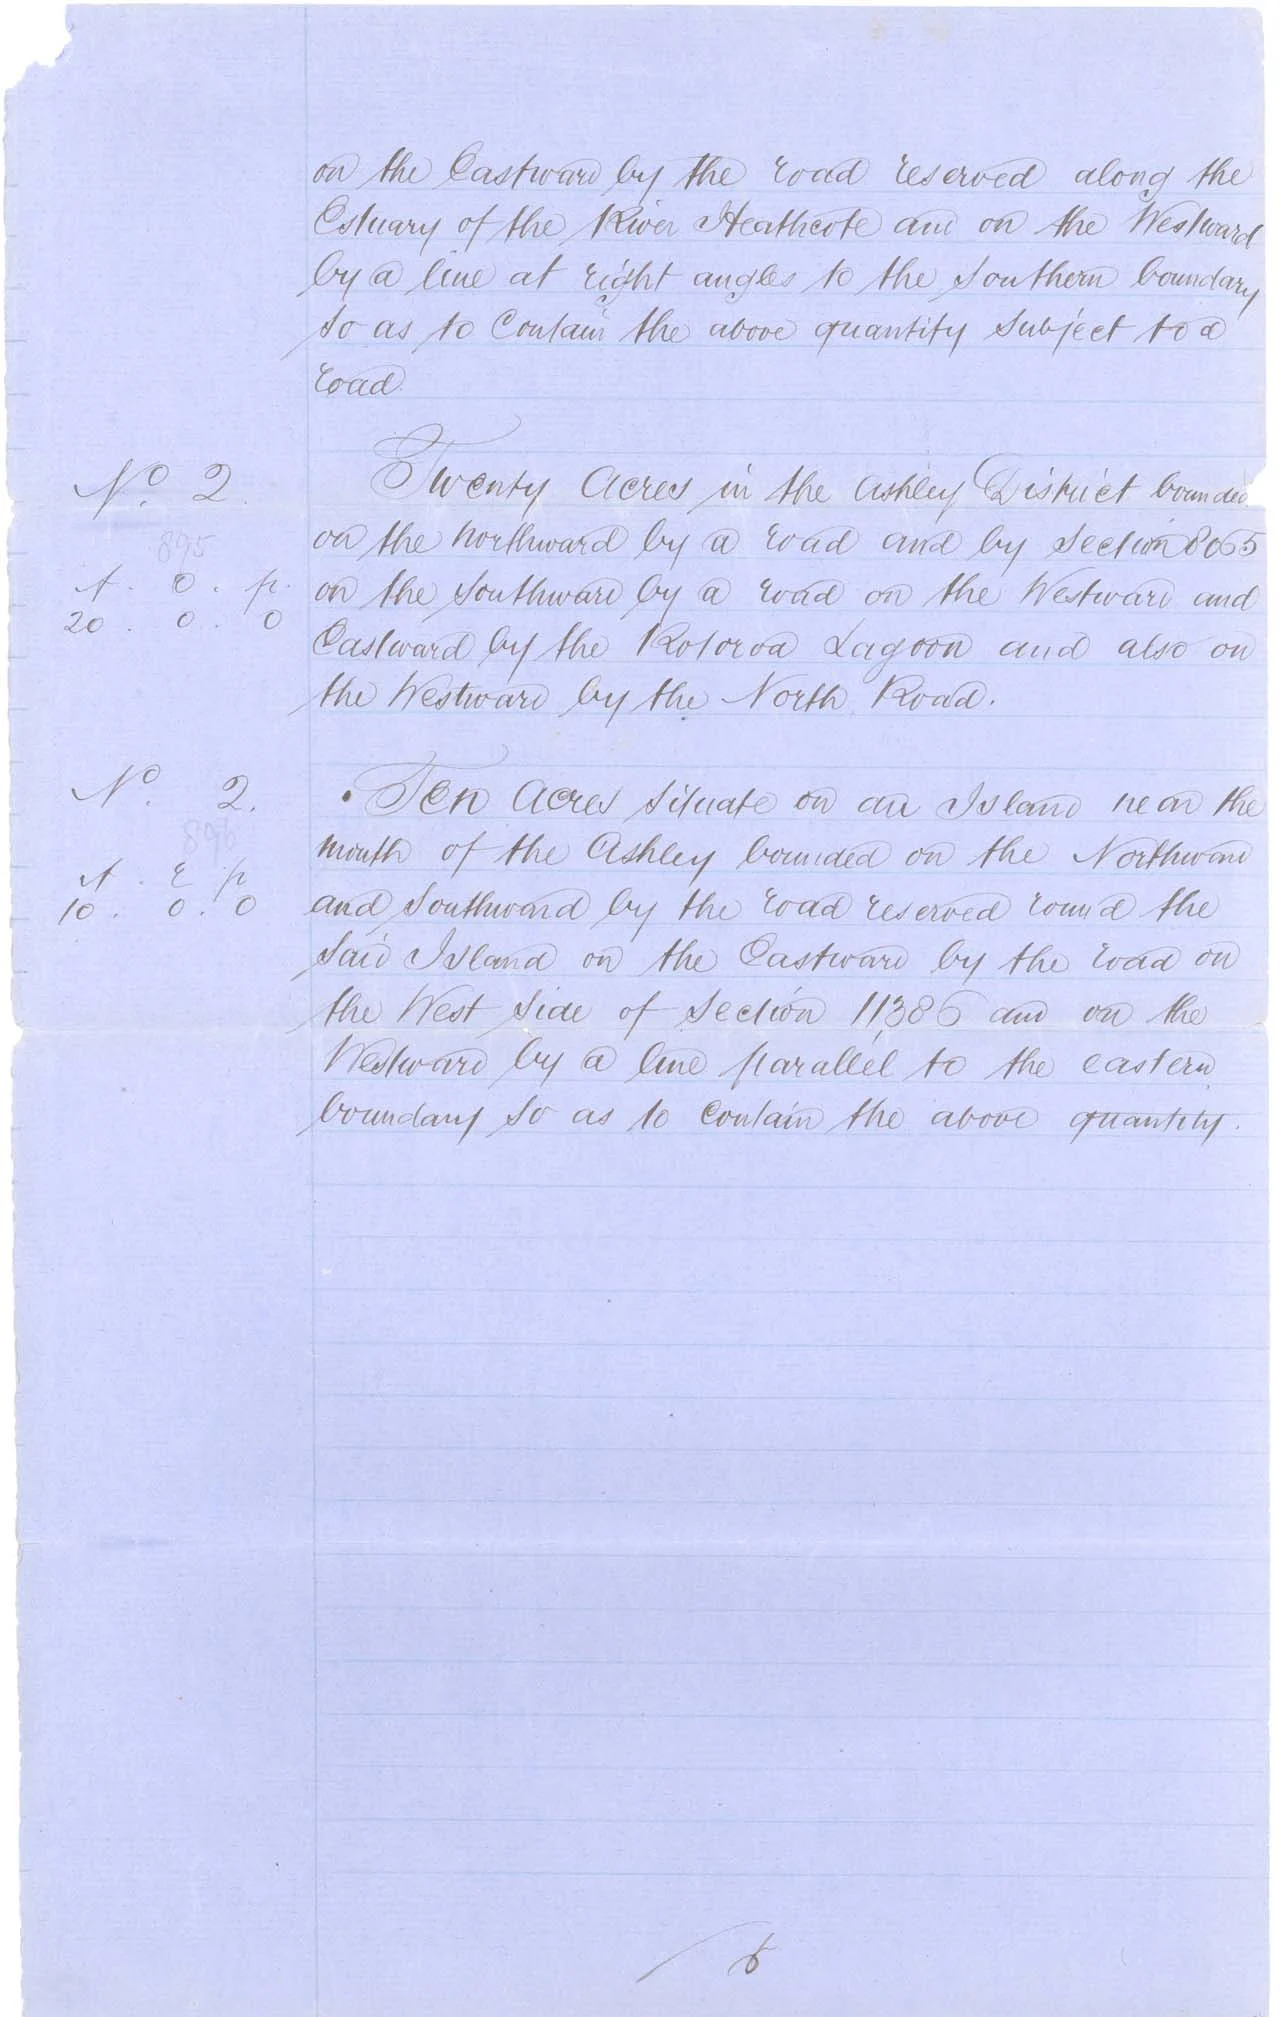 on the Eastward by the road reserved along the
Estuary of the River Heathcote and on the Westward
by a line at right angles to the Southern boundary
so as to Contain the above quantity Subject to a
road
No. 2.
Twenty Acres in the Ashley District bounded
895
on the Northward by a road and by Section 8065
A. 0. p.
on the Southward by a road on the Westward and
20. 0. 0
Eastward by the Kotoroa Lagoon and also on
the Westward by the North Road.
No. 2.
Ten Acres situate on an Island near the
896
mouth of the Ashley bounded on the Northward
A. r p
and Southward by the road reserved round the
10. 0. 0
Said Island on the Eastward by the road on
the West Side of Section 11386 and on the
Westward by a line parallel to the eastern
boundary so as to Contain the above quantity.